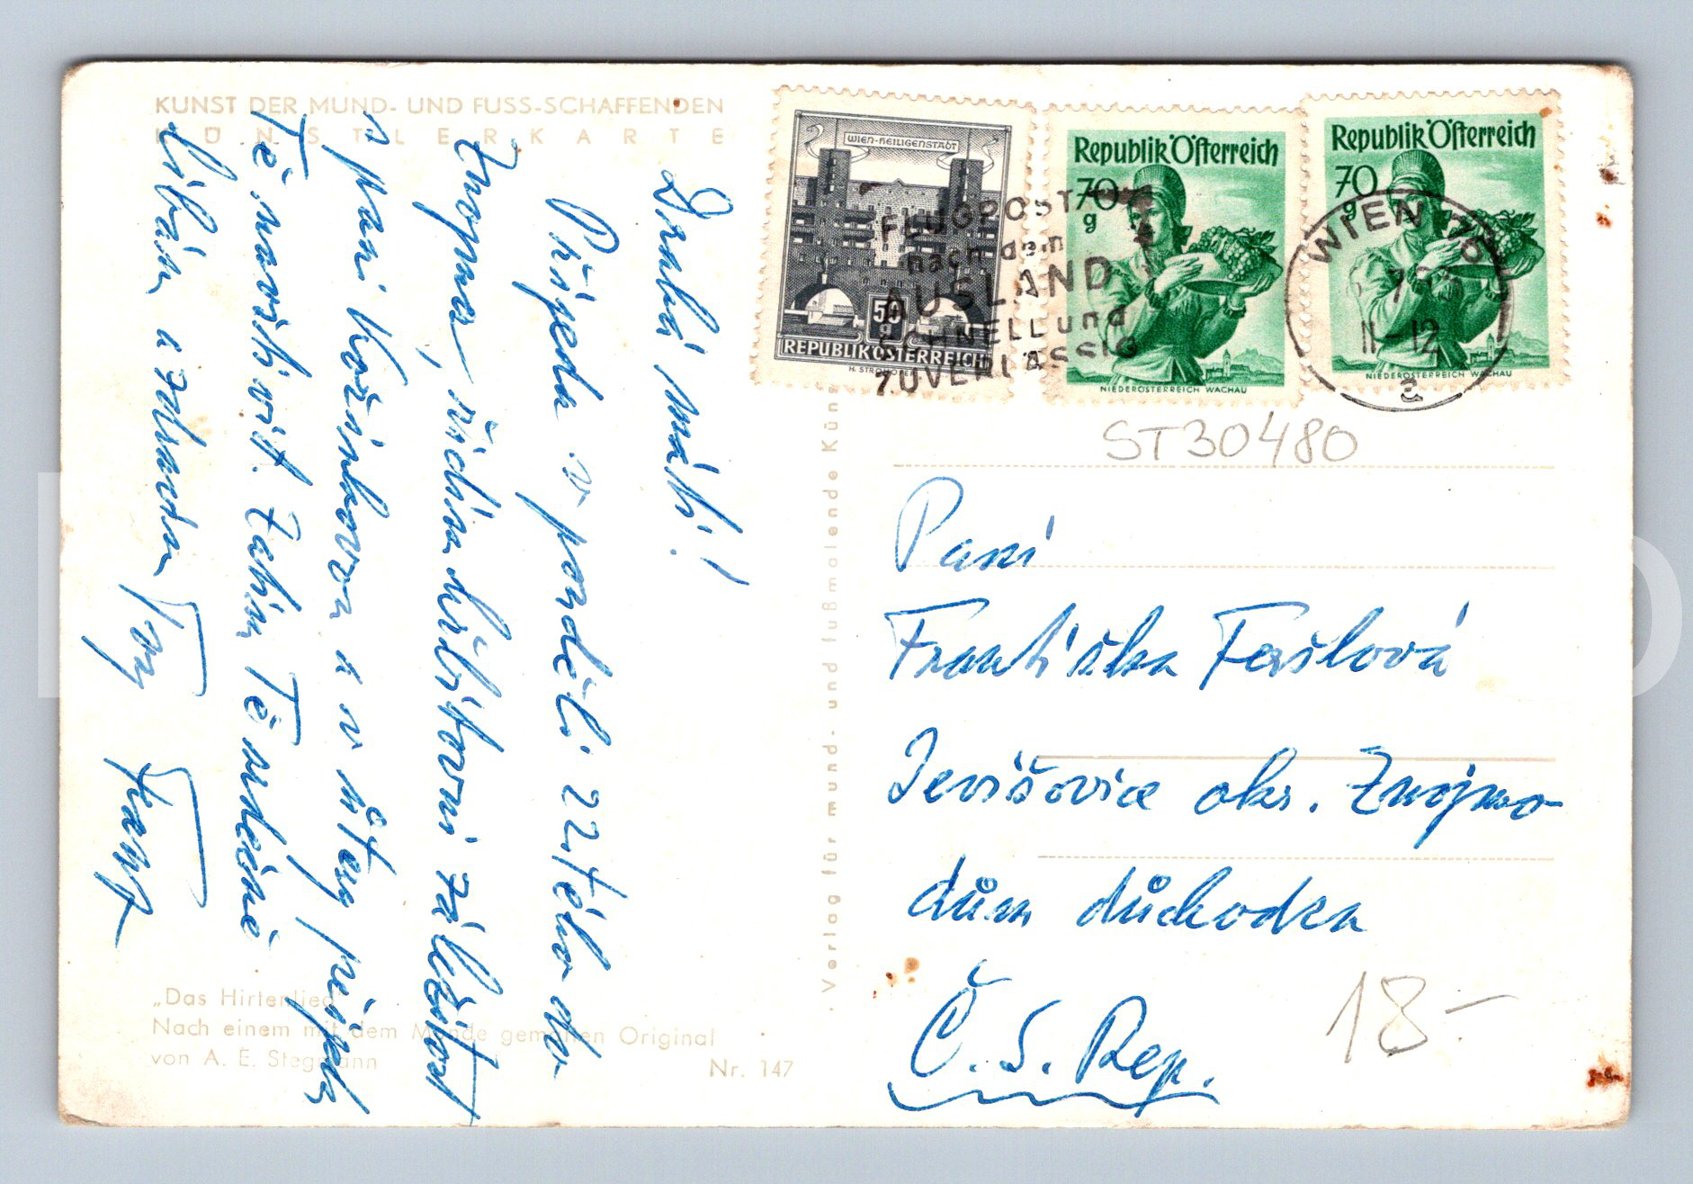 KUNST DER MUND- UND FUSS-SCHAFFENDEN
KÜNSTLERKARTE
Drahá máti!
Přijedu v pondělí 22tého do
Znojma, řídím hřbitovní záležitost
s paní Kořínkovou a v úterý přijedu
Tě navštívit. Zatím Tě srdečně
líbám a zdravím
Tvůj Franz
„Das Hirtenlied"
Nach einem mit dem Munde gemalten Original
von A. E. Stegmann
Nr. 147
Verlag für mund- und fußmalende Küns
WIEN-HEILIGENSTADT
50
g
REPUBLIK ÖSTERREICH
Republik Österreich
70
g
NIEDERÖSTERREICH WACHAU
Republik Österreich
70
g
NIEDERÖSTERREICH WACHAU
FLUGPOST
nach dem
AUSLAND
SCHNELL und
ZUVERLÄSSIG
WIEN 76
11-12
a
ST30480
Paní
Františka Fašlová
Jevišovice okr. Znojmo
dům důchodců
Č. S. Rep.
18.-